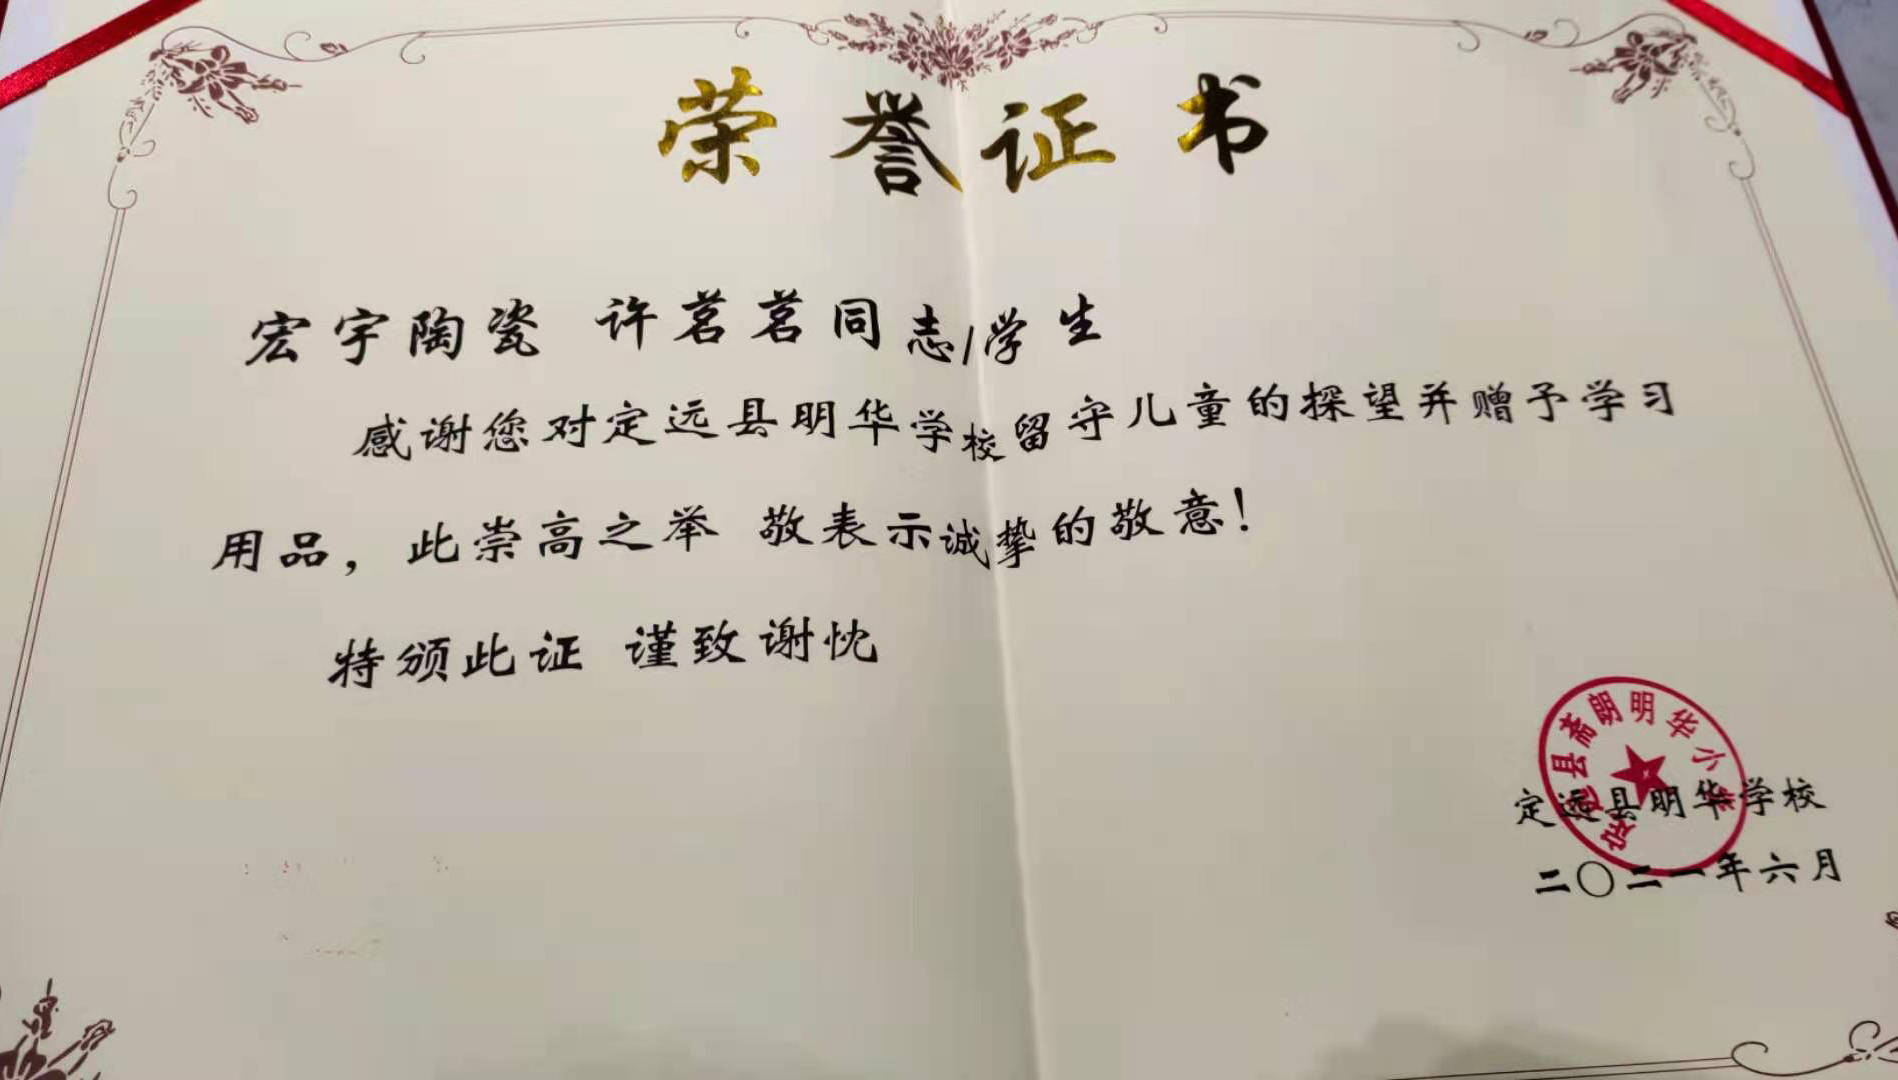 荣誉证书
宏宇陶瓷 许茗茗同志/学生
感谢您对定远县明华学校留守儿童的探望并赠予学习
用品，此崇高之举 敬表示诚挚的敬意！
特颁此证 谨致谢忱
定远县斋朗明华小学
定远县明华学校
二〇二一年六月